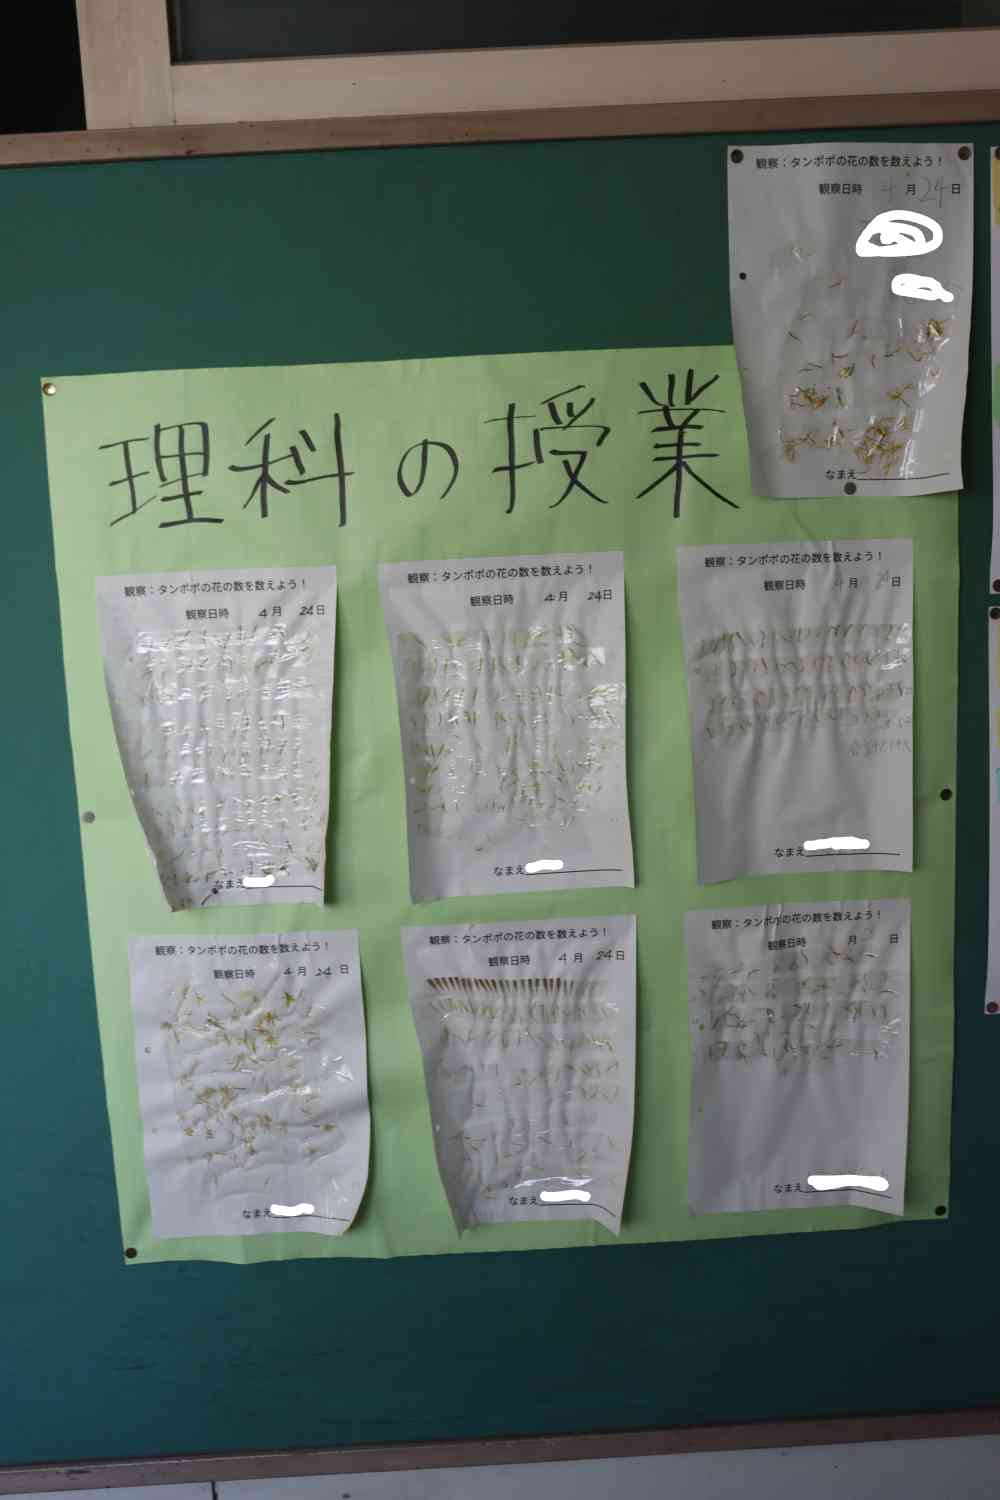 観察：タンポポの花の数を数えよう！
観察日時 4月24日
なまえ
理科の授業
観察：タンポポの花の数を数えよう！
観察日時 4月 24日
なまえ
観察：タンポポの花の数を数えよう！
観察日時 4月 24日
なまえ
観察：タンポポの花の数を数えよう！
観察日時 4月 24日
なまえ
観察：タンポポの花の数を数えよう！
観察日時 4月 24日
なまえ
観察：タンポポの花の数を数えよう！
観察日時 4月 24日
なまえ
観察：タンポポの花の数を数えよう！
観察日時 月 日
なまえ